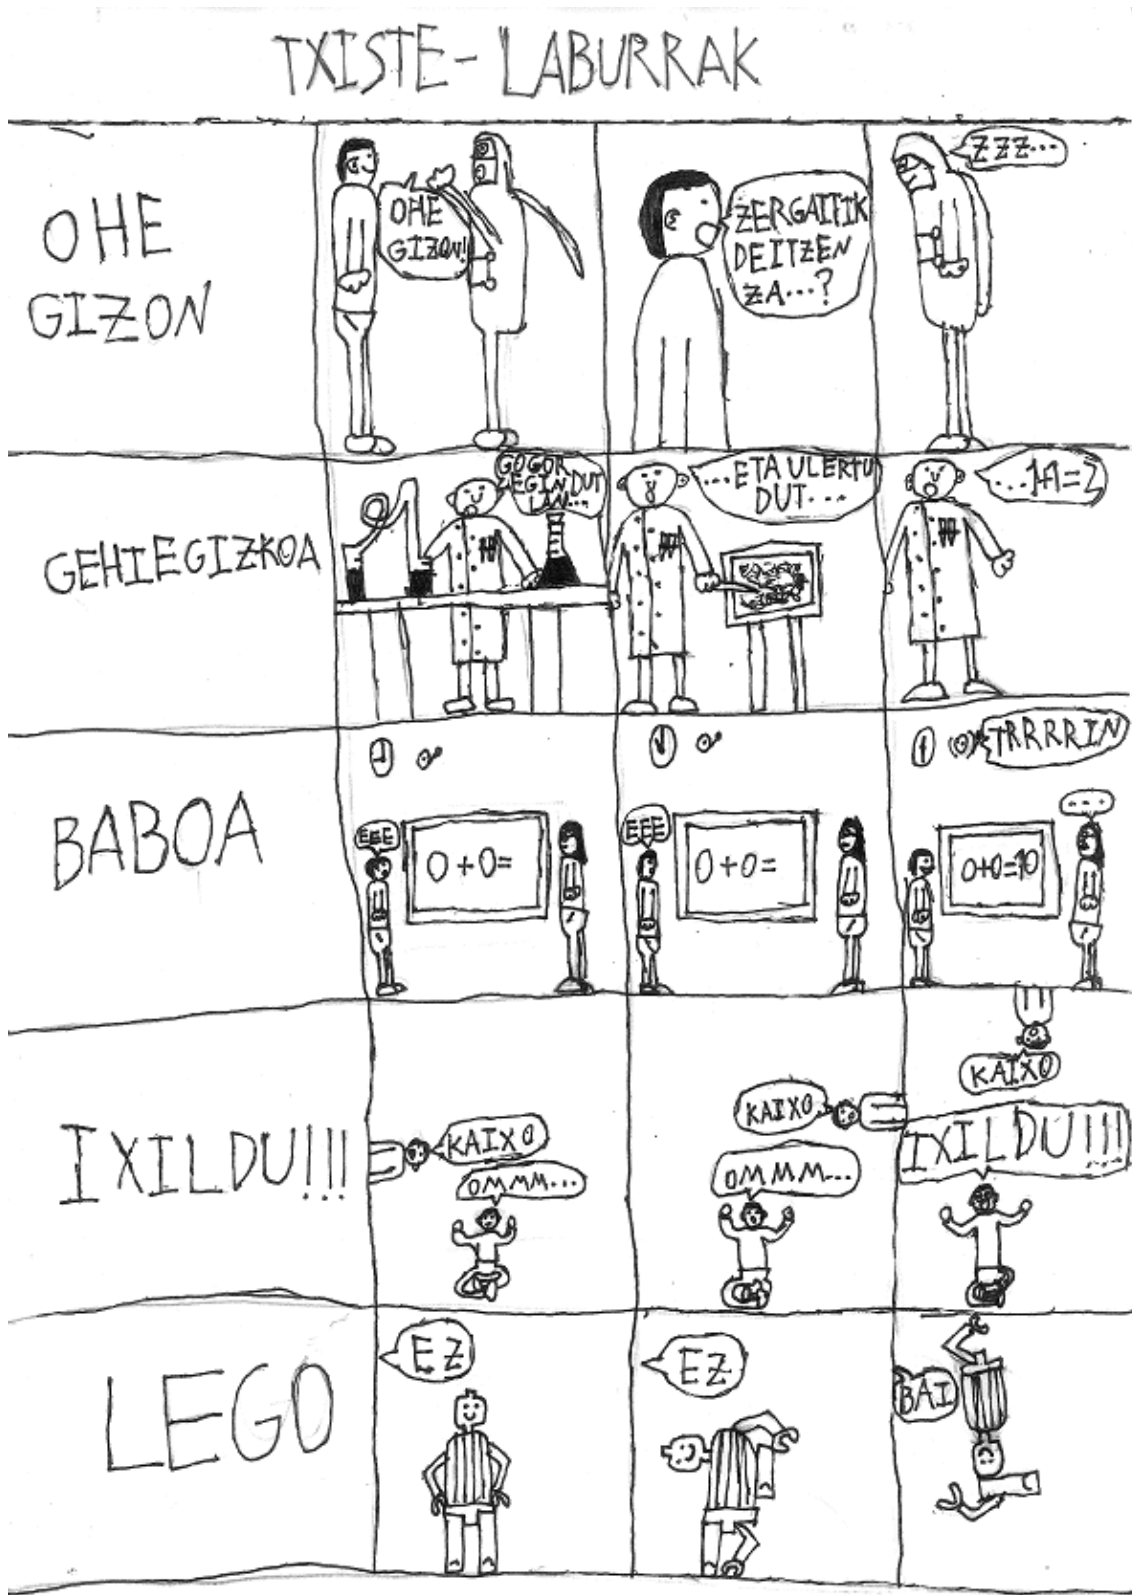 TXISTE-LABURRAK
OHE
GIZON
OHE
GIZON!
ZERGAITIK
DEITZEN
ZA...?
ZZZ...
GEHIEGIZKOA
GOGOR
EGIN DUT
LAN...
...ETA ULERTU
DUT...
...1+1=2
BABOA
EEE
0+0=
EEE
0+0=
TRRRRIN
...
0+0=10
IXILDU!!!
KAIXO
OMMM...
KAIXO
OMMM...
KAIXO
IXILDU!!!
LEGO
EZ
EZ
BAI